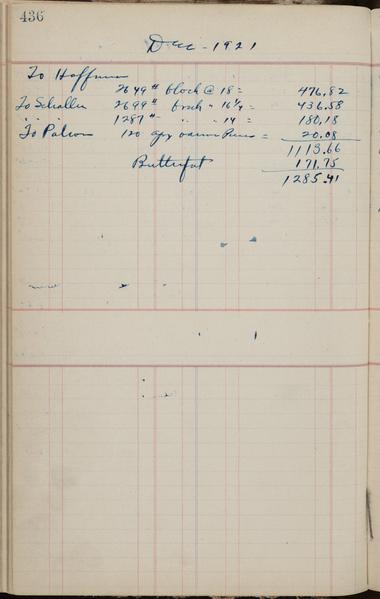 436
Dec - 1921
To Hoffman
2649 # block @ 18 = 476.82
To Schaller 2699 # brick " 436.58
" " 1287 # " " 14 = 180.18
To Patron 120 = 20.08
1113.66
Butterfat 171.75
1285.41